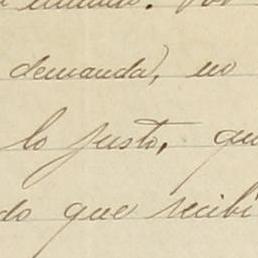 demanda), no
lo justo, qu
do que recibi